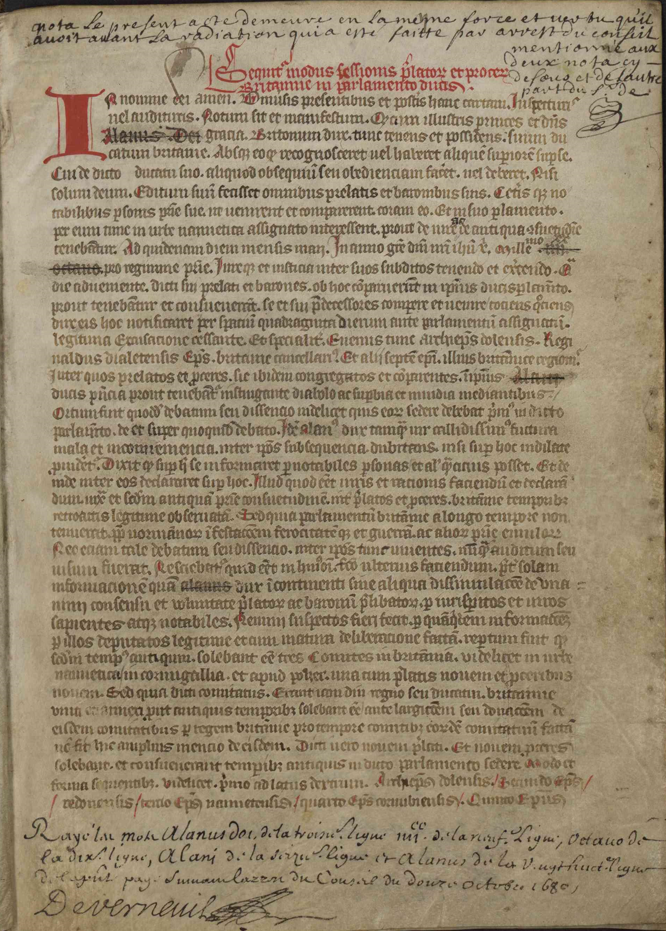 nota Le present acte demeure en la même force et vertu qu'il
avoit avant La radiation qui a este faitte par arrest du conseil
mentionné aux
deux nota cy
desous et de l'autre
part du Sr de
Sequit modus sessionis plator et procer
Britannie in parlamento ducis
In nomine dei amen. Omnibus presentibus et postis hanc cartam Inspectur
vel auditur. Notum sit et manifestum. Qum illustris princes et dns
Alanus Dei gracia. Britonum dux tunc tenens et possidens suum du
catum britanie. Absq eo q recognosceret vel haberet aliquem superiore supse.
Cui de dicto ducatu suo. aliquod obsequium seu obedienciam facet. vel deberet. Nisi
solum deum. Edictum suum fecisset omnibus prelatis et baronibus suis. Cetis q no
tabilibus psonis prie sue. ut venirent et comparerent coram eo. Et in suo plamento.
per eum tunc in urbe nannetica assignato interessent. prout de iure ac antiqua
tenebant. Ad quindenam diem mensis maii. In anno gre dni nri ihu x. Mille
octauo. pro regimine prie. Iureq et iusticia inter suos subditos tenendo et exercendo.
die adveniente. dicti sui prelati et barones. ob hoc
prout tenebantur et consueuerat. se et sui pdecessores compere et venire
dux eis hoc notificaret per spatium quadraginta dierum ante parlamentum assignatum.
legitima Excusacione cessante. Et specialit. Evenus tunc archieps dolensis. Regi
naldus dialetensis Eps. britanie cancellari. Et alii septem epi. illius britannice region
Inter quos prelatos et pceres. sic ibidem congregatos et coparentes. in ipius Alani
ducis pncia prout tenebat instigante diabolo ac supbia et invidia mediantibus
Ortum fuit quod debatum seu dissencio videlicet quis eor sedere debebat pmi in dicto
parlamento. de et super quoquid debato. Idz alan dux tamq vir callidissim futura
mala et inconueniencia. inter ipos subsequencia dubitans. nisi sup hoc indilate
 Dixit q sup hoc se informaret p notabiles psonas et al q cicius posset. Et de
inde inter eos declararet sup hoc. Illud quod eet iuris et racionis faciendu et declara
dum. iuxta et secdm antiqua prie consuetudinem. int platos et pceres. britanie temporibz
retroactis legitime obseruata. Sed quia parlamentum britanie a longo tempore non
tenuerat. pp normanor infestacem ferocitatem q et guerra. ac alior prie emulor
Nec eciam tale debatum seu dissencio. inter ipos tunc viventes. auditum seu
visum fuerat. Nesciebat quid eet in hui fco ulterius faciendum. pt solam
informacionem quam alanus dux in continenti sine aliqua dissimulacoe de vna
nimi consensu et voluntate plator ac baronu plibator. p iurispitos et viros
sapientes atq notabiles. Nemini suspectos fieri fecit. p quaqdem informacoem
p illos deputatos legitime et cum matura deliberacione factam. reptum fuit q
secdm temp antiquum. solebant ee tres Comites in britania. videlicet in urbe
nannetica in cornugallia. et apud poher. vna cum platis novem et pceribus
novem. Sed quia dicti comitatus. Erant vniti dicti regno seu ducatui. britannie
vniti et annexi put antiquis temporibz solebant ee ante largicoem seu donacoem de
eisdem comitatibus p regem britanie pro tempore comitibz eordem comitatuu factam
 fit hic amplius mencio de eisdem. Dicti vero novem plati. Et novem pceres
solebant. et consueuerant temporibz antiquis in dicto parlamento sedere. Modo et
forma sequentibz. videlicet. pmo ad latus dextrum. Archieps dolensis / Secundo Eps /
/ redonensis / tercio Eps nannetensis / quarto Eps cornubiensis / Quinto Episcus
Rayé les mots Alanus Dei, de la troise. ligne iiii.cc de la neufe. Ligne, octavo de
la dixe. ligne, Alani de la seize. ligne et Alanus de la vingt huict. ligne
de la pnt page Suivant Larrest du Conseil du douze octobre 1680,
Deverneuil